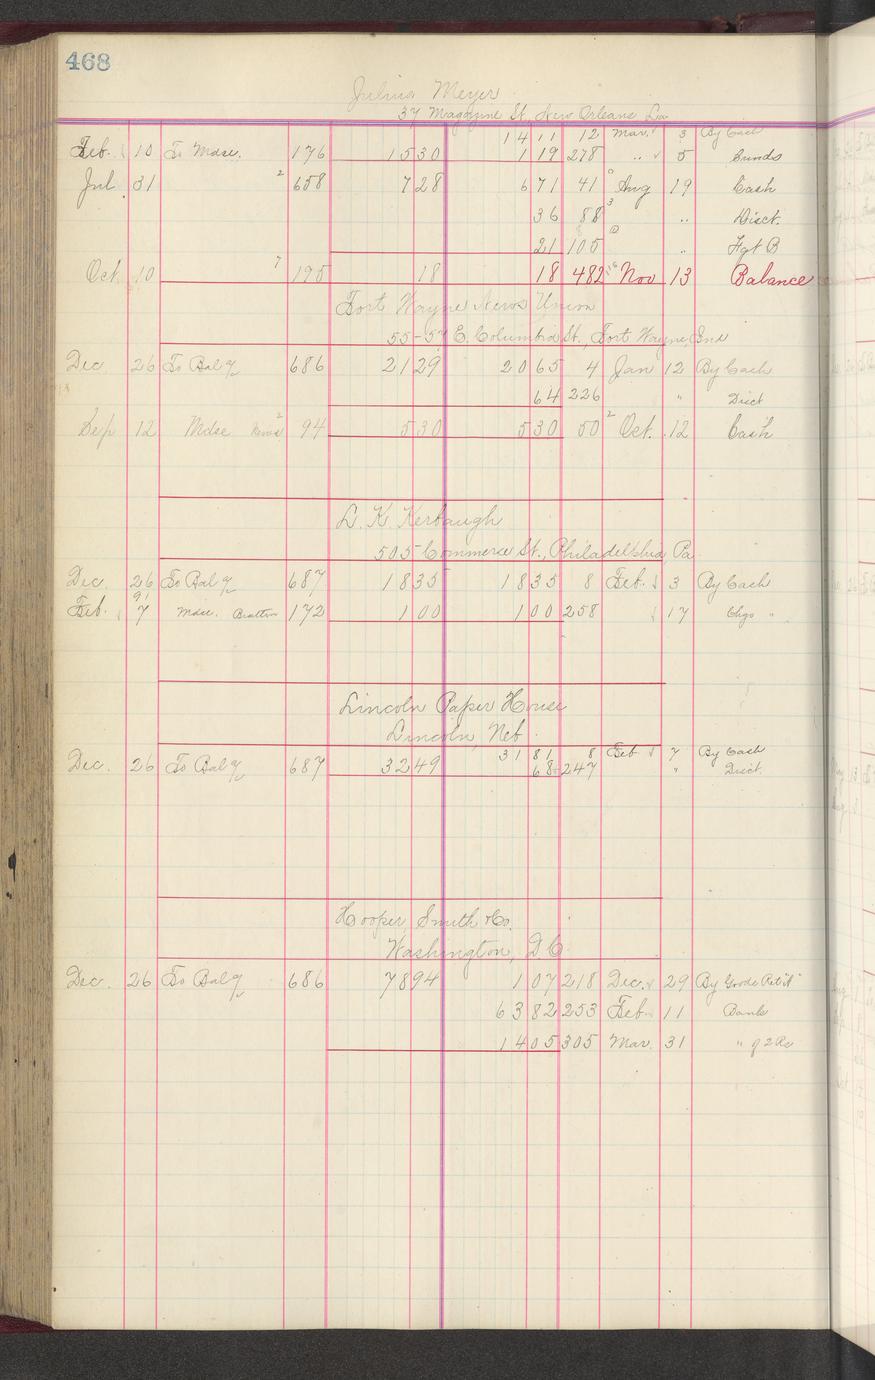 468
Julius Meyer
37 Magazine St, New Orleans La
14 11 12 Mar. 3 By Cash
Feb. 10 To Mdse. 176 15 30 1 19 278 " 5 Sunds
Jul 31 2 658 7 28 6 71 41 Aug 19 Cash
36 88 3 " Disct.
21 105 " Fgt B
Oct. 10 7 195 18 18 482 Nov 13 Balance
Fort Wayne News Union
55-57 E. Columbia St., Fort Wayne, Ind
Dec 26 To Bal 686 21 29 20 65 4 Jan 12 By Cash
64 226 " Disct
Sep 12 Mdse 2 94 5 30 5 30 50 2 Oct. 12 Cash
L. K Kerbaugh
505 Commerce St., Philadelphia, Pa.
Dec. 26 To Bal 687 18 35 18 35 8 Feb. 3 By Cash
Feb. 7 Mdse. 172 1 00 1 00 258 17 Chgo "
Lincoln Paper House
Lincoln, Neb.
31 81 8 Feb 7 By Cash
Dec. 26 To Bal 687 32 49 68 247 " Disct.
Hooper Smith & Co.
Washington, D C
Dec. 26 To Bal 686 78 94 1 07 218 Dec. 29 By Goods Ret'd
63 82 253 Feb. 11 Bank
14 05 305 Mar. 31 "